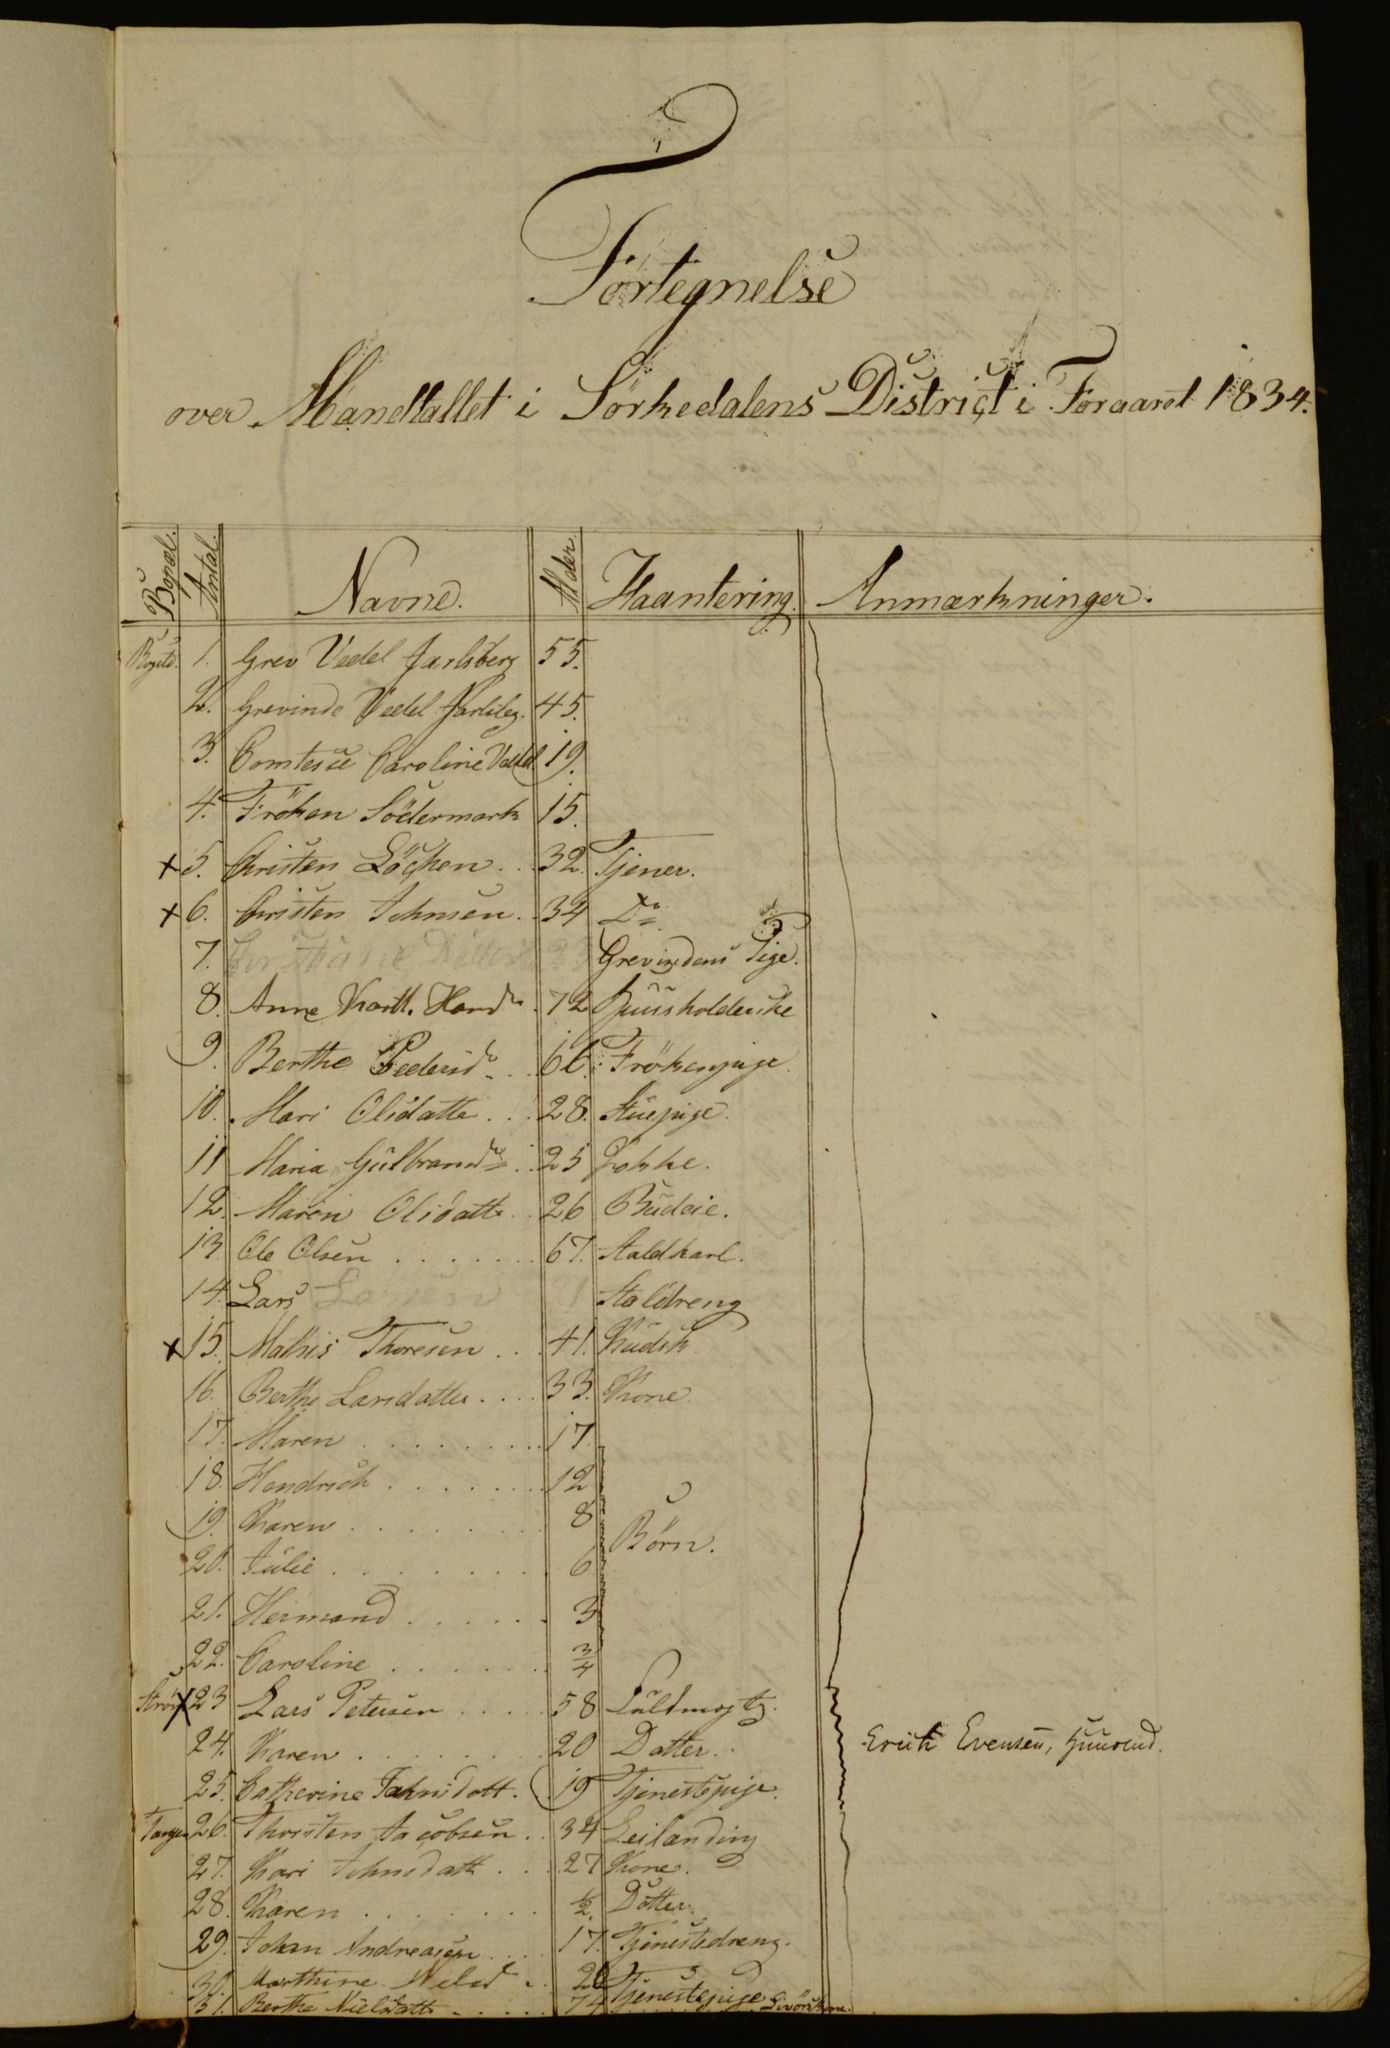 Förtegnelse
over Mandtallet i Sörkedalens District i Foraaret 1834.
Bopæl. Antal. Navne. Alder. Haantering. Anmærkninger.
Bogstd. 1. Grev Vedel Jarlsberg 55.
2. Grevinde Vedel Jarlsbg. 45.
3. Comtesse Caroline Vedel 19.
4. Fröken Södermark 15.
x 5. Christen Löchen . . 32. Tjener.
x 6. Christen Johnsen . 34 Do
7. Grevindens Pige.
8. Anne Hansd. 72 Huusholderske
9. Berthe Pedersd. . . 66. Frökenpige.
10. Mari Olsdatte . . . 28. Stuepige.
11 Maria Gulbrandsd. . 25 Kokke.
12. Maren Olsdatte . 26 Budeie.
13. Ole Olsen . . . . . . 67. Staldkarl.
14. Lars Larsen Staldreng
x 15. Mathis Thoresen . . . 41. Kudsk
16. Berthe Larsdatter . . . . 33. Kone.
17. Maren . . . . . . . . 17.
18. Hendrich . . . . . . . 12
19. Karen . . . . . . . . 8
Börn.
20. Julie . . . . . . . . 6
21. Hermand . . . . . . 3
22. Caroline . . . . . . 3/4
Ström x 23 Lars Petersen . . . . 58 Fuldmægtg.
24. Karen . . . . . . . . 20 Datter. Erich Evensen, Huusmd.
25. Catherine Johnsdatt. 19 Tjenestepige.
Tangen 26. Thorsten Jacobsen . . 34 Leilænding
27. Kari Johnsdatt . . . . 27 Kone.
28. Karen . . . . . . . 1/2. Dotter.
29. Johan Andreasen . . . 17. Tjenestedreng.
30. Marthine Nielsd. . . 20 Tjenestepige
31. Berthe Nielsdatt . . . . . 74 Livörekone.